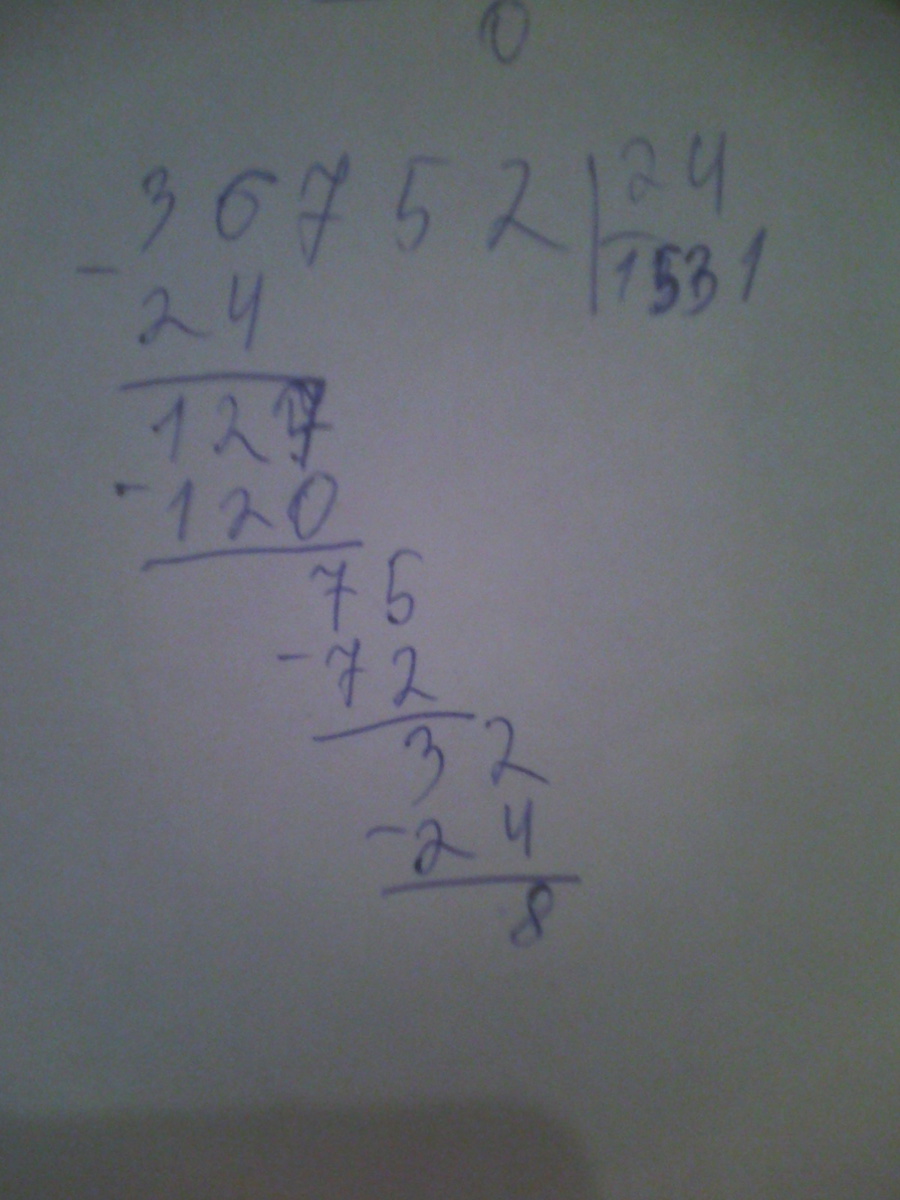 0
36752 | 24
- 24 1531
127
- 120
75
- 72
32
- 24
8